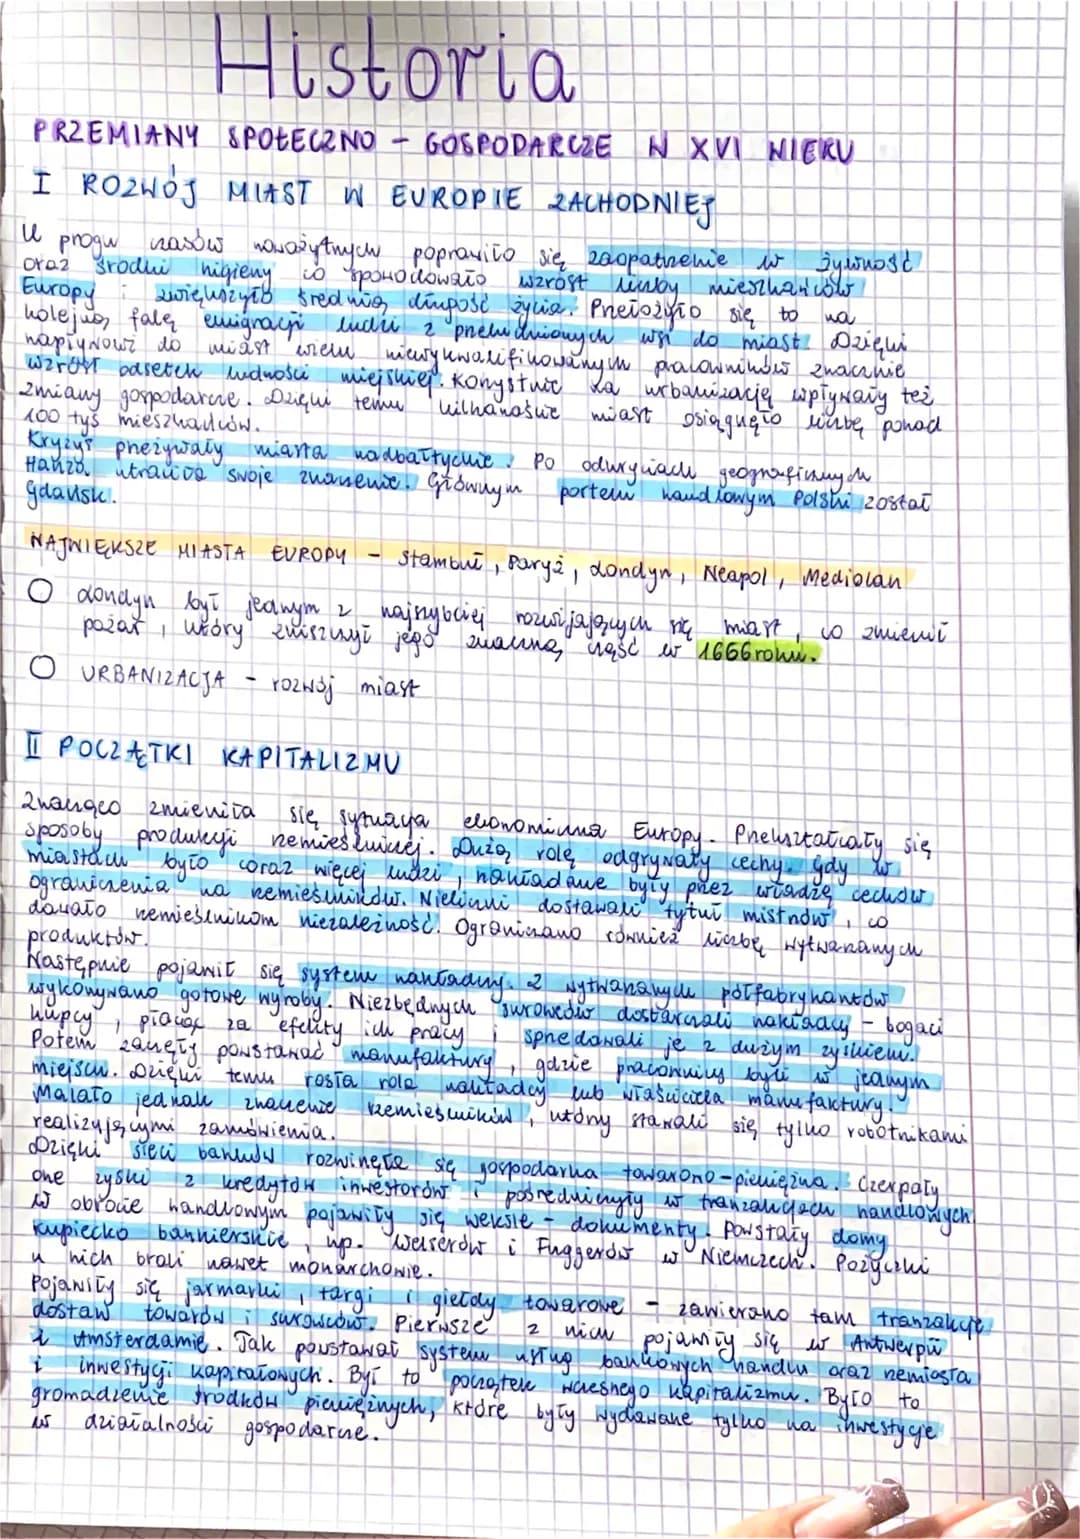 Historia
PRZEMIANY SPOŁECZNO - GOSPODARCZE W XVI WIEKU
I ROZWÓJ MIAST W EUROPIE ZACHODNIEJ
U progu czasów nowożytnych poprawiło się zaopatrzenie w żywność
oraz środki higieny co spowodowało wzrost liczby mieszkańców
Europy i zwiększyło średnią długość życia. Przełożyło się to na
kolejną falę emigracji ludzi z przeludnionych wsi do miast. Dzięki
napływowi do miast wielu niewykwalifikowanych pracowników znacznie
wzrósł odsetek ludności miejskiej. Korzystnie na urbanizację wpływały też
zmiany gospodarcze. Dzięki temu kilkanaście miast osiągnęło liczbę ponad
100 tyś mieszkańców.
Kryzys przeżywały miasta nadbałtyckie. Po odkryciach geograficznych
Hanza utraciła swoje znaczenie. Głównym portem handlowym Polski został
Gdańsk.
NAJWIĘKSZE MIASTA EUROPY - Stambuł, Paryż, Londyn, Neapol, Mediolan
○ Londyn był jednym z najszybciej rozwijających się miast, co zmienił
pożar, który zniszczył jego znaczną część w 1666 roku.
○ URBANIZACJA - rozwój miast
II POCZĄTKI KAPITALIZMU
Znacząco zmieniła się sytuacja ekonomiczna Europy. Przekształcały się
sposoby produkcji rzemieślniczej. Dużą rolę odgrywały cechy. Gdy w
miastach było coraz więcej ludzi, nakładane były przez władzę cechów
ograniczenia na rzemieślników. Nieliczni dostawali tytuł mistrzów, co
dawało rzemieślnikom niezależność. Ograniczano również liczbę wytwarzanych
produktów.
Następnie pojawił się system nakładczy. Z wytwarzanych półfabrykantów
wykonywano gotowe wyroby. Niezbędnych surowców dostarczali nakładcy - bogaci
kupcy, płacąc za efekty ich pracy i sprzedawali je z dużym zyskiem.
Potem zaczęły powstawać manufaktury, gdzie pracownicy byli w jednym
miejscu. Dzięki temu rosła rola nakładcy lub właściciela manufaktury.
Malało jednak znaczenie rzemieślników, którzy stawali się tylko robotnikami
realizującymi zamówienia.
Dzięki sieci banków rozwinęła się gospodarka towarowo-pieniężna. Czerpały
one zyski z kredytów inwestorów i pośredniczyły w tranzakcjach handlowych
W obrocie handlowym pojawiły się weksle - dokumenty. Powstały domy
kupiecko bankierskie, np. Welserów i Fuggerów w Niemczech. Pożyczki
u nich brali nawet monarchowie.
Pojawiły się jarmarki, targi i giełdy towarowe - zawierano tam tranzakcje
dostaw towarów i surowców. Pierwsze z nich pojawiły się w Antwerpii
i Amsterdamie. Tak powstawał system usług bankowych handlu oraz rzemiosła
i inwestycji kapitałowych. Był to początek wczesnego kapitalizmu. Było to
gromadzenie środków pieniężnych, które były wydawane tylko na inwestycje
w działalności gospodarcze.